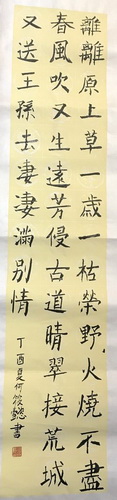 離離原上草一歲一枯榮野火燒不盡
春風吹又生遠芳侵古道晴翠接荒城
又送王孫去萋萋滿別情
丁酉夏何筱懿書